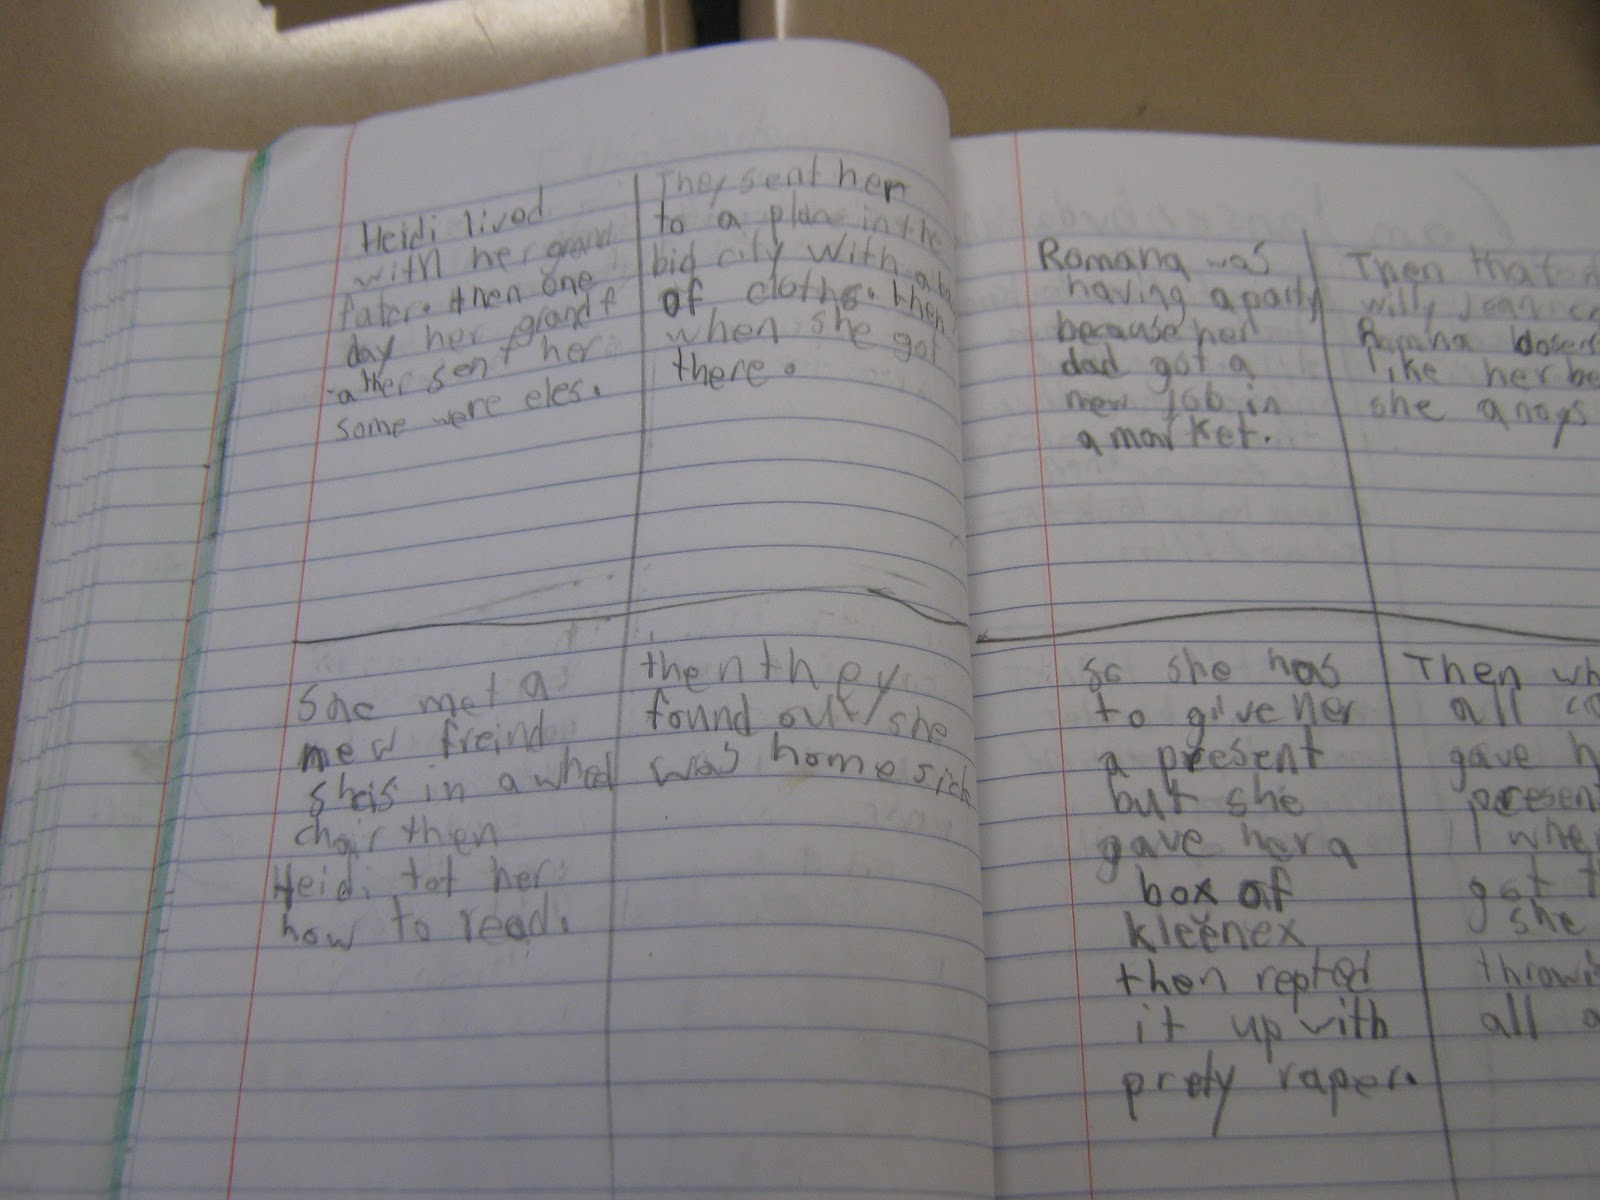 Heidi lived
with her grand
fater. then one
day her grandf
ather sent her
some were eles.
They sent her
to a plan in the
bid city with a
of cloths. then
when she got
there.
She met a
new freind
sheis in a wheel
chair then
Heidi tot her
how to read.
then they
found out she
was home sick
Romana was
having a party
because her
dad got a
new job in
a market.
Then that
willy Jean
Ramana dosen
like her be
she anoys
so she has
to give her
a present
but she
gave her a
box of
kleenex
then repted
it up with
prety raper.
Then wh
all co
gave h
presen
whe
got t
she
throwi
all a